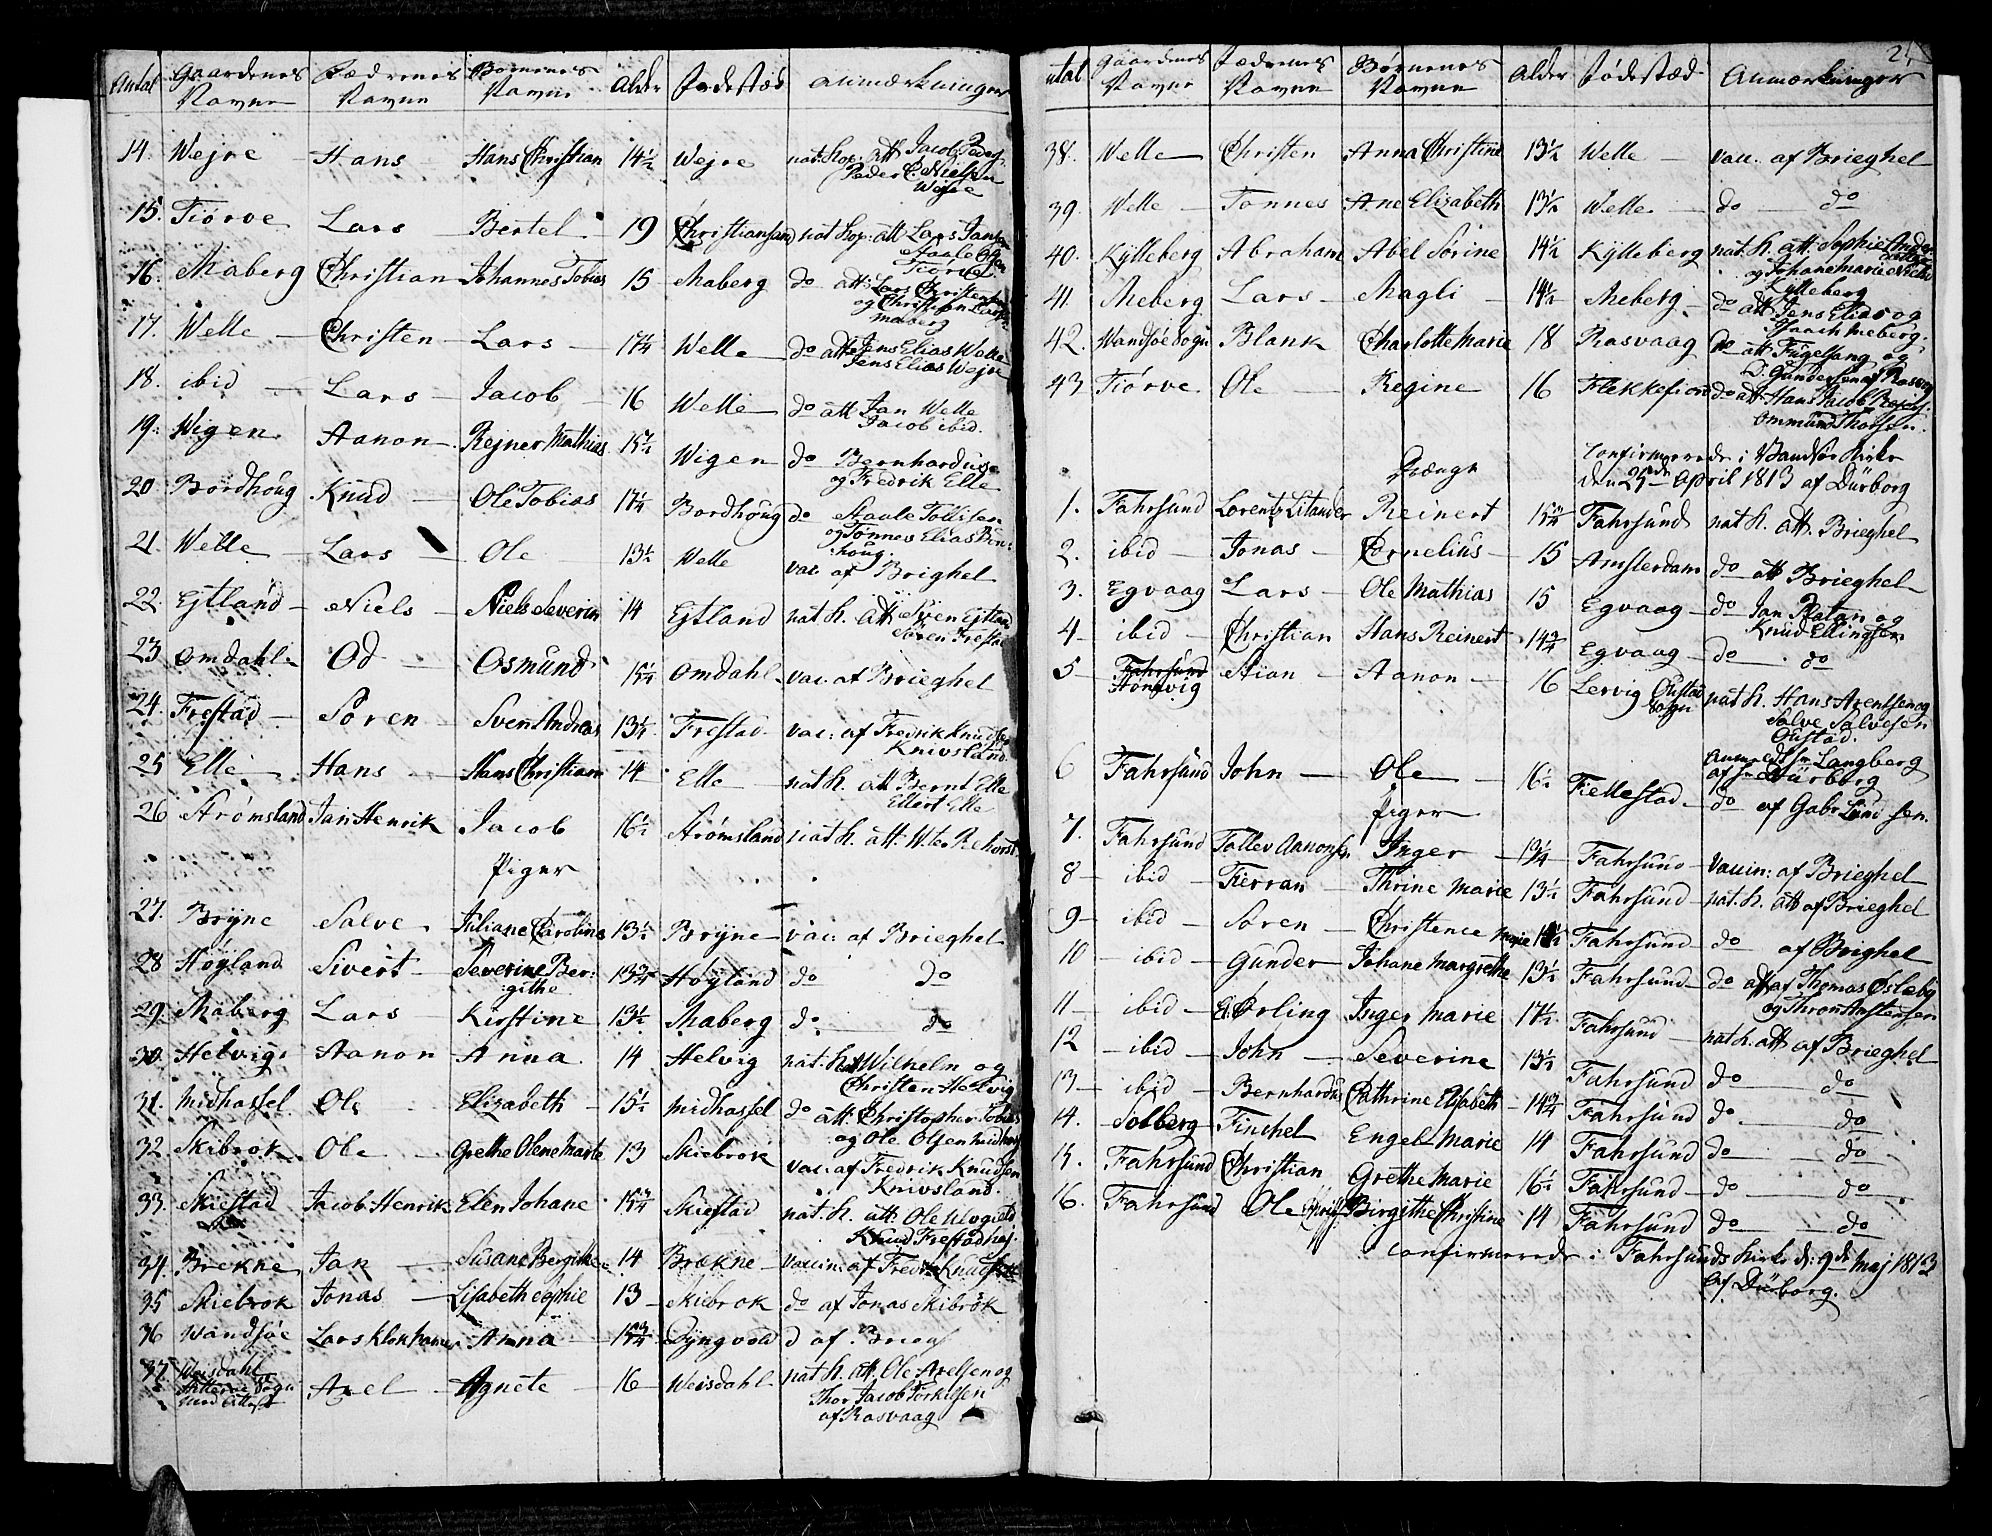 Antal Gaardenes Navne Fædrenes Navne Børnenes Navne Alder Fødestæd Anmærkninger
14. Wejre Hans Hans Christian 14½ Wejre nat. Kop. att Jacob Peder
Peder C. Nielsen
Wejre
15. Tiørve Lars Bertel 19 Christiansand nat kop. att Lars Jansen
Staale Ogen
Tiørve
16. Maberg Christian Johannes Tobias 15 Maberg do att Lars Christensen
og Christen Larsen
Maberg
17. Welle Christen Lars 17¼ Welle do att Jens Elias Welle
Jens Elias Wejre
18. ibid Lars Jacob 16 Welle do att Jan Welle
Jacob ibid.
19. Wigen Aanon Rejner Mathias 15½ Wigen do Bernhardus
og Fredrik Elle
20 Bordhoug Knud Ole Tobias 17¼ Bordhoug do Staale Tollisen
og Tønnes Elias Bor:
houg.
21. Welle Lars Ole 13½ Welle vac. af Brighel
22. Ejtland Niels Niels Severin 14 Ejtland nat k. att Søren Ejtland
Søren Frestad
23 Omdahl Od Osmund 15¼ Omdahl vac. af Brieghel
24. Frestad Søren Sven Andreas 13¼ Frestad vac: af Fredrik Knudsen
Knivsland
25 Elle Hans Hans Christian 14 Elle nat k. att Bernt Elle
Ellert Elle
26 Strømsland Jan Henrik Jacob 16½ Strømsland nat k. att. W. ter Rehorst
Piger
27. Brÿne Salve Juliane Caroline 13½ Brÿne vac: af Brieghel
28 Høyland Sivert Severine Ber:
:githe 13¾ Høyland do do
29. Maberg Lars Kirstine 13½ Maberg do do
30. Helvig Aanon Anna 14 Helvig nat. k att Wilhelm og
Christen Helvig
31. Midhassel Ole Elizabeth 15½ Midhassel do att. Christopher Tobias
og Ole Olsen Midhass
32 Skibrok Ole Grethe Olene Marie 13 Skiebrok vac: af Fredrik Knudsen
Knivsland.
33. Skiestad Jacob Henrik Elen Johane 15¾ Skiestad nat. k. att: Ole
Knud Frestad
34. Brekne Jan Susane Bergithe 14 Brekne vaccin: af Fredrik Knudsen
35 Skiebrok Jonas Lisabeth Sophie 13 Skiebrok do af Jonas Skibrok
36 Wandsøe Lars Klokhamer Anna 15¾ Dyngvold d af Brieg
37. Weisdahl
Hitterøe Sogn
med Attest Axel Agnete 16 Weisdahl nat. k. att. Ole Axelsen og
Thor Jacob Torkilsen
af Rasvaag
21
Antal Gaardenes Navne Fædrenes Navne Børnenes Navne Alder Fødestæd Anmærkninger
38. Welle Christen Anna Christine 13½ Welle vacc. af Brieghel
39. Welle Tonnes Ane Elizabeth 13½ Welle do do
40. Kÿlleberg Abraham Abel Sørine 14½ Kÿlleberg nat. k. att: Sophie Anders
datter
og Johane Marie Niels
Kylleberg
41. Meberg Lars Magli 14½ Meberg do att Jens Elias og
Isaach Meberg.
42. Wandsøe Sogn Blank Charlotte Marie 18 Rasvaag do att Fugelsang og
D. Gundersen af Rasvaag
43 Tiørve Ole Regine 16 Flekkefiord do att Hans Jacob
Ommund Thorsen.
Confirmerede i Wandsøe Kirke
den 25de April 1813 af Dürborg
Drenge
1. Fahrsund Lorentz Litander Reinert 15¾ Fahrsund nat k. att. Brieghel
2. ibid Jonas Cornelius 15 Amsterdam do att Brieghel
3. Egvaag Lars Ole Mathias 15 Egvaag do Jan Ratan og
Knud Ellingsen
4 ibid Christian Hans Reinert 14¾ Egvaag do do
5 Fahrsund
Hønsvig Stian Aanon 16 Lervig Oustad
Sogn nat k. Hans Arentsen og
Salve Salvesen
Oustad.
Anmeldt Langberg
af Dürborg
6 Fahrsund John Ole 16½ Fiellestad do af Gabr. Lund sen.
Piger
7. Fahrsund Tollev Aanonsen Inger 13¼ Fahrsund vaccin: af Brieghel
8 ibid Fierran Thrine Marie 13½ Fahrsund nat. k. att af Brieghel
9 ibid Søren Christence Marie Fahrsund do af Brighel
10 ibid Gunder Johane Margrethe 13½ Fahrsund do att af Thomas Øslebÿ
og Thron Anstensen
11 ibid Erling Inger Marie 17½ Fahrsund nat k. att af Brieghel
12 ibid John Severine 13½ Fahrsund do do
13 ibid Bernhardus Cathrine Elisabeth 14¾ Fahrsund do do
14. Solberg Finchel Engel Marie 14 Fahrsund do do
15. Fahrsund Christian Grethe Marie 16½ Fahrsund do do
16. Fahrsund Ole Birgithe Christine 14 Fahrsund do do
Confirmerede i Fahrsunds Kirke d: 9de Maj 1813
af Dürborg.